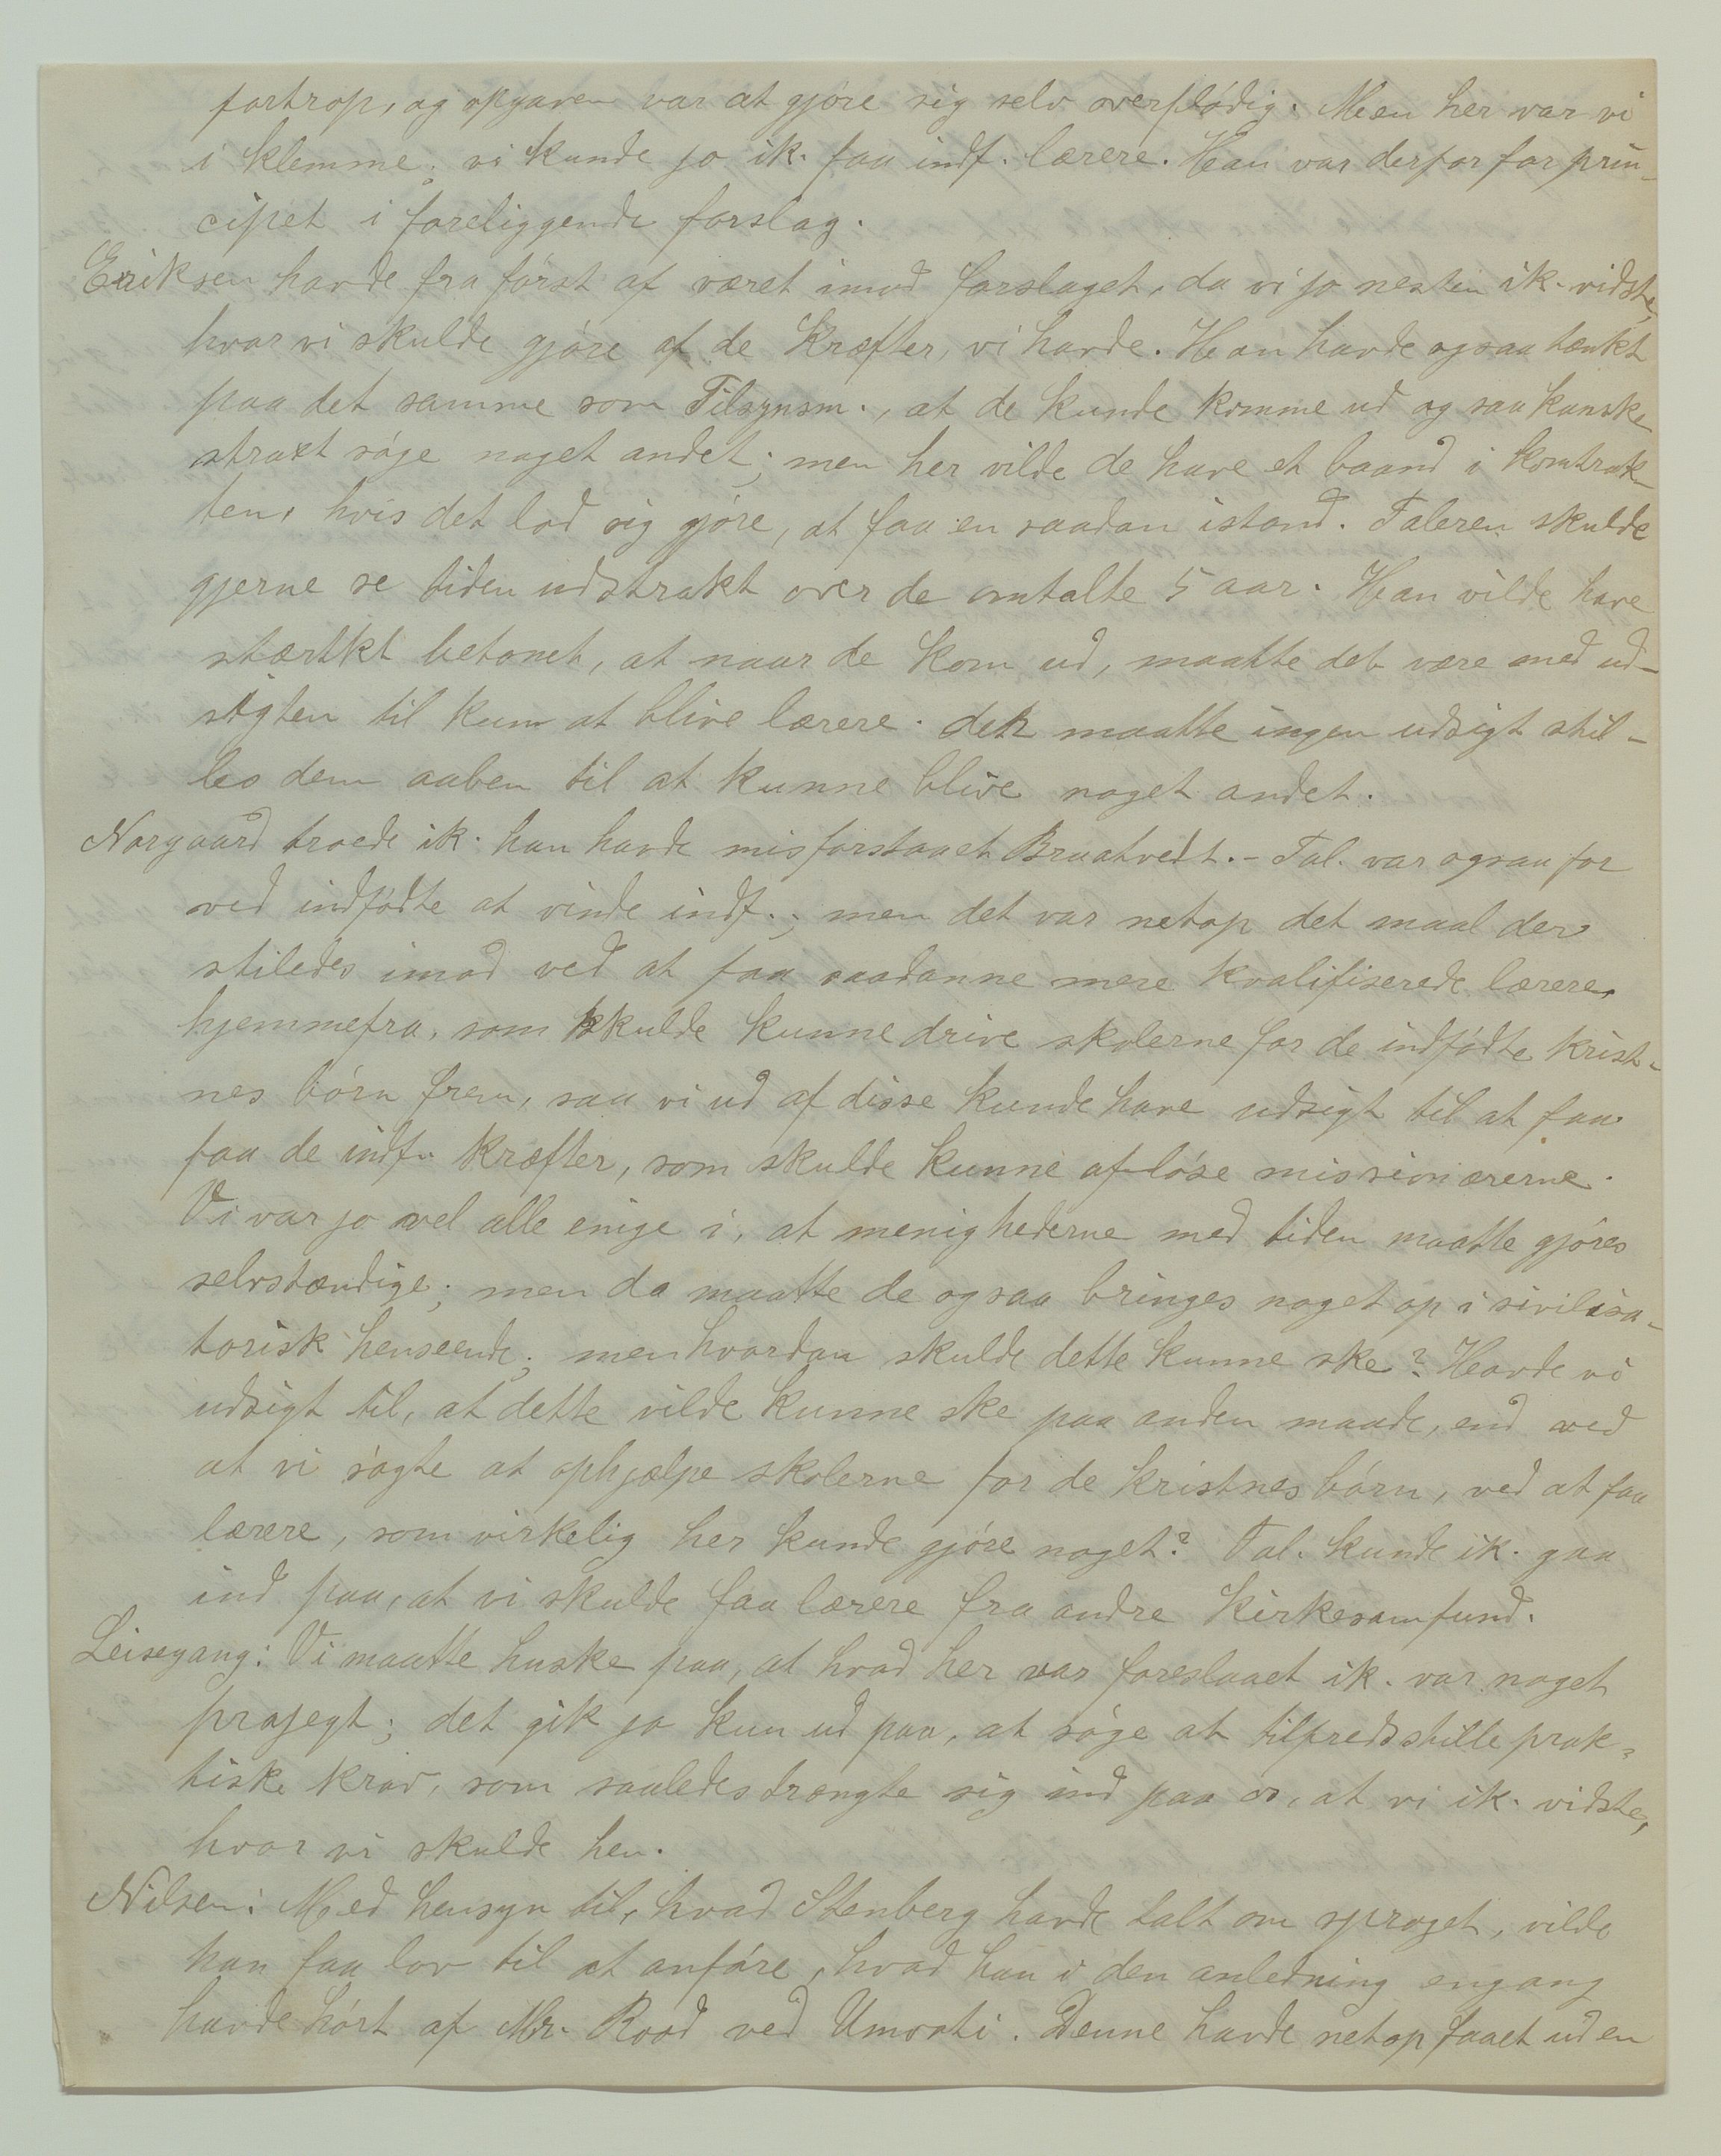 fortrop, og opgaven var at gjøre sig selv overflødig. Men her var vi
i klemme; vi kunde jo ik. faa indf. lærere. Han var derfor for prin-
cipet i foreliggende forslag.
Eriksen havde fra først af været imod forslaget, da vi jo nesten ik. vidste,
hvor vi skulde gjøre af de kræfter, vi havde. Han havde ogsaa tænkt
paa det samme som Tilsynsm., at de kunde komme ud og saa kanske
strakt søge noget andet; men her vilde de have et baand i kontrak-
ten, hvis det lod sig gjøre, at faa en saadan istand. Taleren skulde
gjerne se tiden udstrakt over de omtalte 5 aar. Han vilde have
stærkt betonet, at naar de kom ud, maatte det være med ud-
sigten til kun at blive lærere. der maatte ingen udsigt stil-
les dem aaben til at kunne blive noget andet.
Norgaard troede ik. han havde misforstaaet Braatvedt. - Tal. var ogsaa for
ved indfødte at vinde indf.; men det var netop det maal der
stiledes imod ved at faa saadanne mere kvalifiserede lærere
hjemmefra, som skulde kunne drive skolerne for de indfødte krist-
nes børn frem, saa vi ud af disse kunde have udsigt til at faa
faa de indf. kræfter, som skulde kunne afløse missionærerne.
Vi var jo vel alle enige i, at menighederne med tiden maatte gjøres
selvstændige; men da maatte de ogsaa bringes noget op i sivilisa-
torisk henseende; men hvordan skulde dette kunne ske? Havde vi
udsigt til, at dette vilde kunne ske paa anden maade, end ved
at vi søgte at ophjælpe skolerne for de kristnes børn, ved at faa
lærere, som virkelig her kunde gjøre noget? Tal. kunde ik. gaa
ind paa, at vi skulde faa lærere fra andre kirkesamfund.
Leisegang: Vi maatte huske paa, at hvad her var foreslaaet ik. var noget
prosjegt; det gik jo kun ud paa, at søge at tilfredsstille prak-
tiske krav, som saaledes trængte sig ind paa os, at vi ik. vidste,
hvor vi skulde hen.
Nilsen: Med hensyn til, hvad Stenberg havde talt om sproget, vilde
han faa lov til at anføre, hvad han i den anledning engang
havde hørt af Mr. Rood ved Umvoti. Denne havde netop faaet ud en